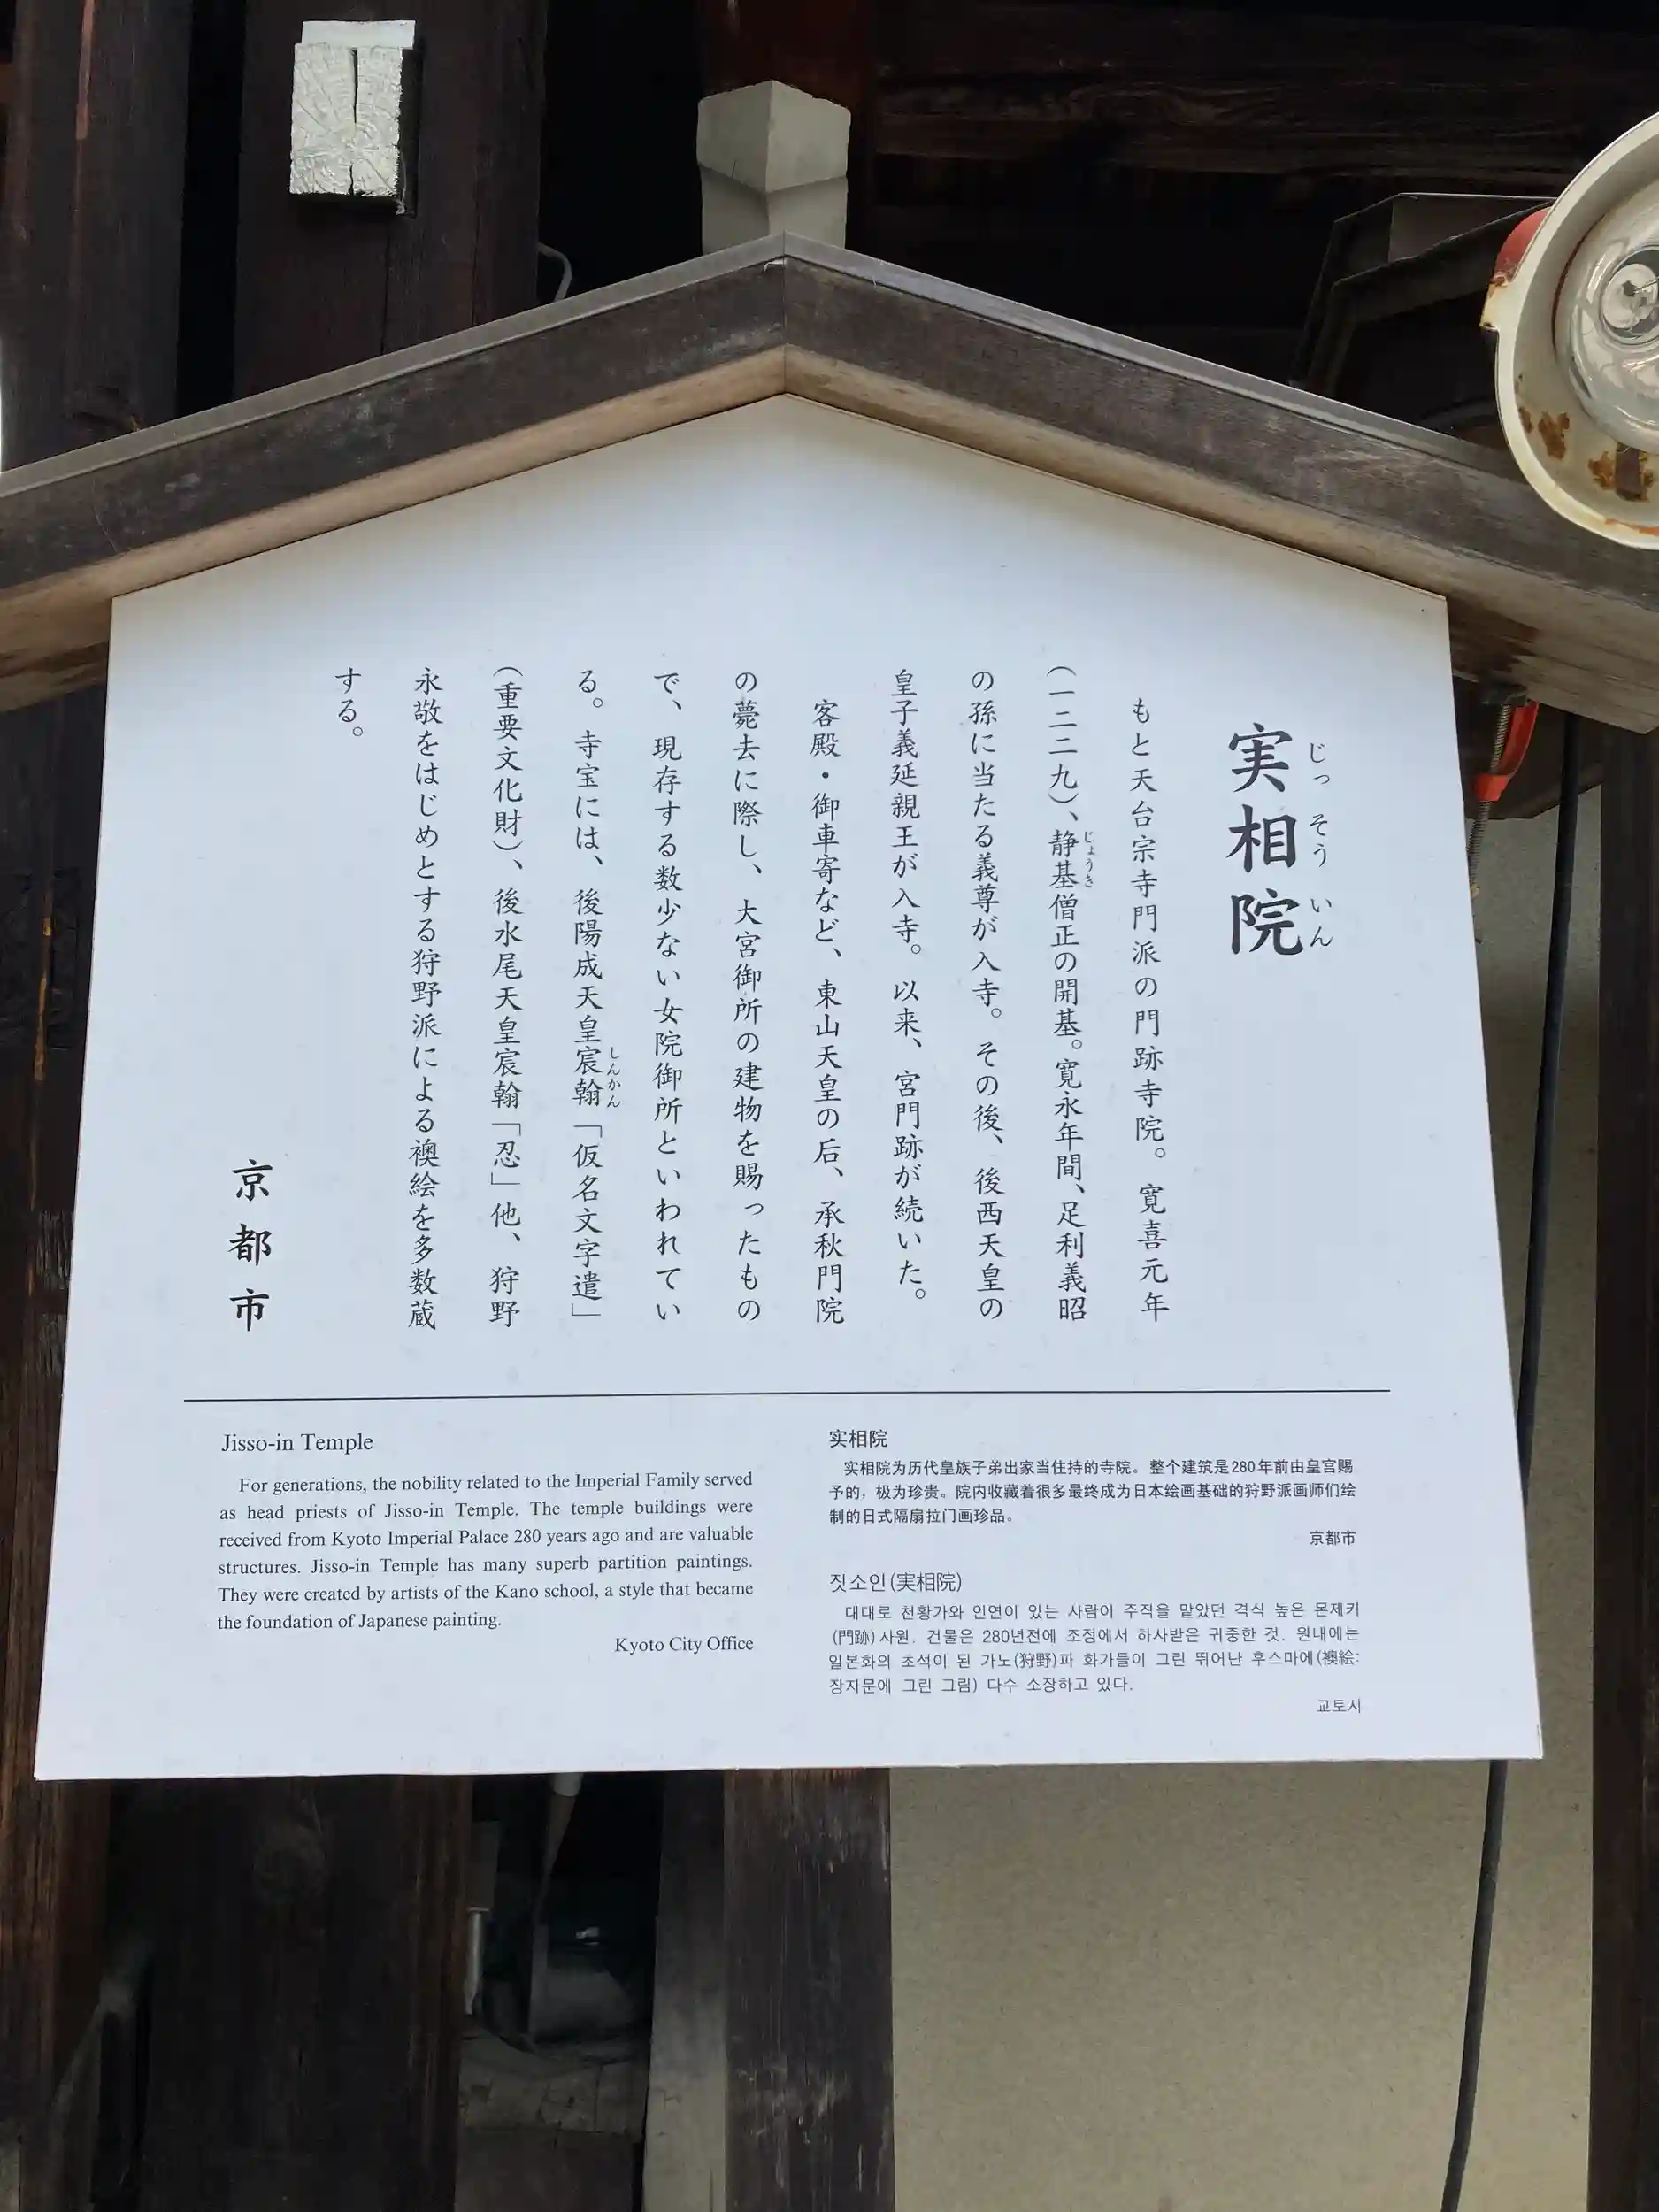 実相院
じっそういん
もと天台宗寺門派の門跡寺院。寛喜元年
（一二二九）、静基僧正の開基。寛永年間、足利義昭
じょうき
の孫に当たる義尊が入寺。その後、後西天皇の
皇子義延親王が入寺。以来、宮門跡が続いた。
客殿・御車寄など、東山天皇の后、承秋門院
の薨去に際し、大宮御所の建物を賜ったもの
で、現存する数少ない女院御所といわれてい
る。寺宝には、後陽成天皇宸翰「仮名文字遣」
しんかん
（重要文化財）、後水尾天皇宸翰「忍」他、狩野
永敬をはじめとする狩野派による襖絵を多数蔵
する。
京都市
Jisso-in Temple
For generations, the nobility related to the Imperial Family served
as head priests of Jisso-in Temple. The temple buildings were
received from Kyoto Imperial Palace 280 years ago and are valuable
structures. Jisso-in Temple has many superb partition paintings.
They were created by artists of the Kano school, a style that became
the foundation of Japanese painting.
Kyoto City Office
实相院
实相院为历代皇族子弟出家当住持的寺院。整个建筑是280年前由皇宫赐
予的，极为珍贵。院内收藏着很多最终成为日本绘画基础的狩野派画师们绘
制的日式隔扇拉门画珍品。
京都市
짓소인(実相院)
대대로 천황가와 인연이 있는 사람이 주직을 맡았던 격식 높은 몬제키
(門跡)사원. 건물은 280년전에 조정에서 하사받은 귀중한 것. 원내에는
일본화의 초석이 된 가노(狩野)파 화가들이 그린 뛰어난 후스마에(襖絵:
장지문에 그린 그림) 다수 소장하고 있다.
교토시